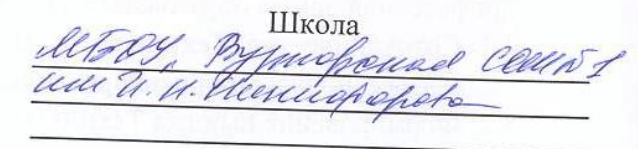 Школа
МБОУ Вурнарская СОШ №1
им И. Н. Никифорова